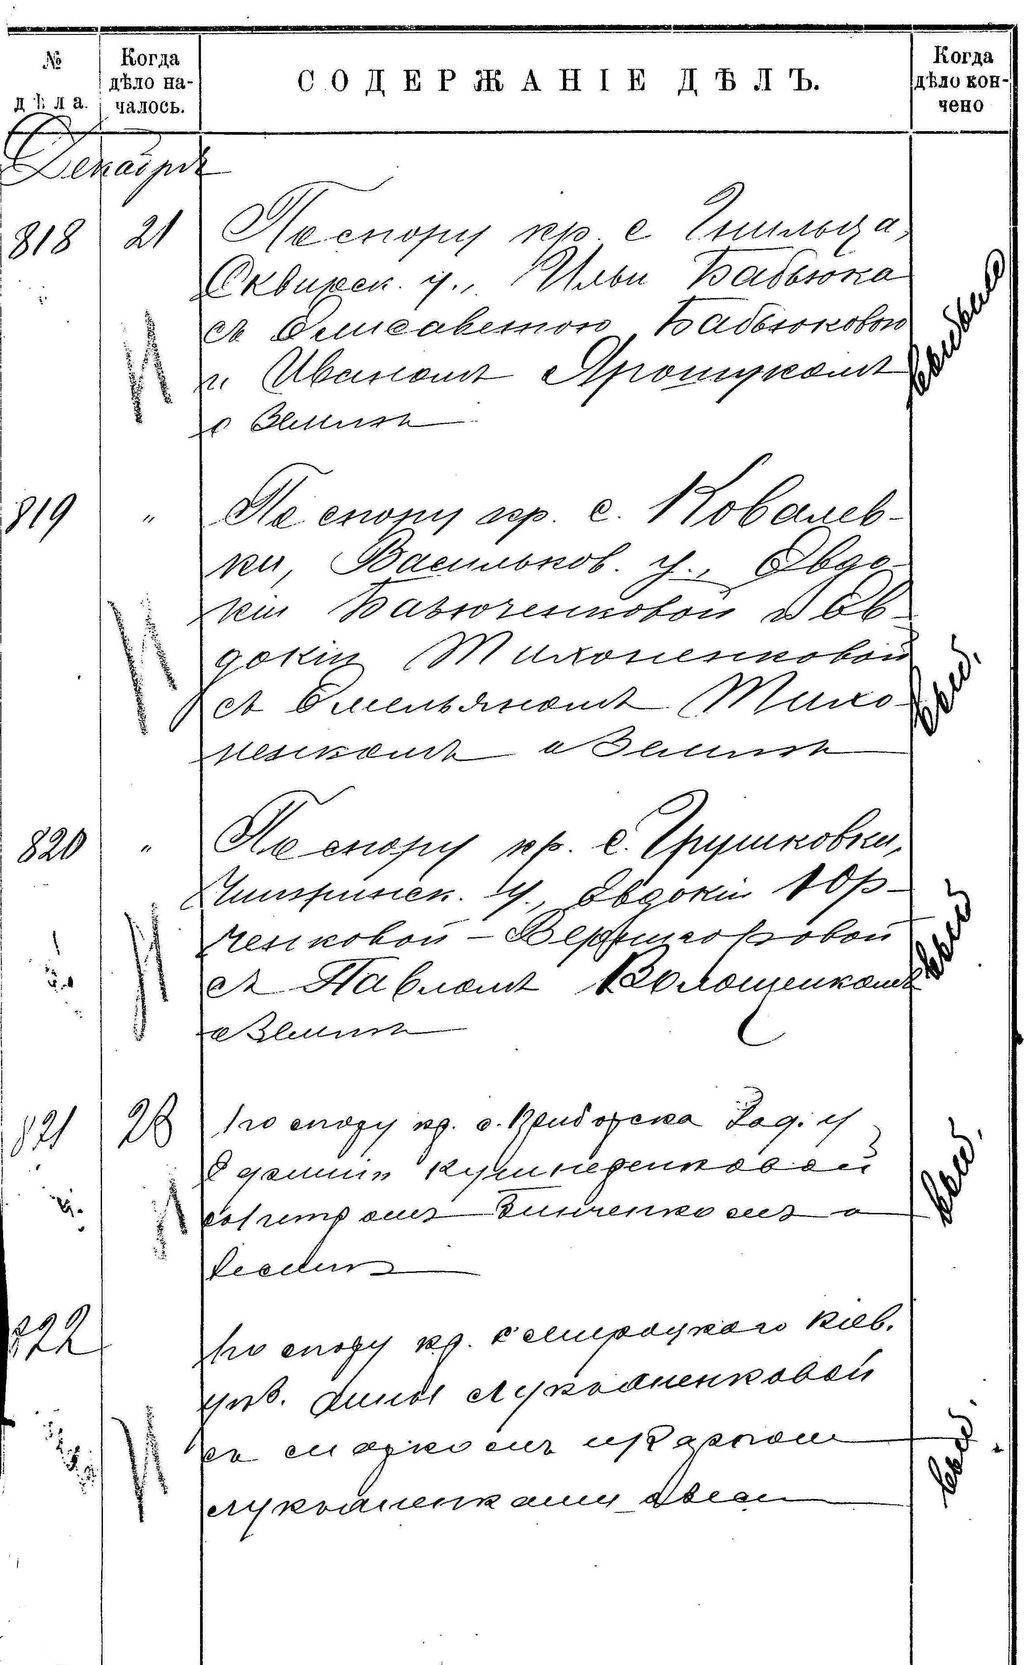 № дѣла.
Когда дѣло началось.
СОДЕРЖАНІЕ ДѢЛЪ.
Когда дѣло кончено
Декабрь
818 21 По спору кр. с Гнильца,
Сквирск. у., Ильи Бабьюка
съ Елисаветою Бабьюковою
и Иваномъ Ярощукомъ
о землѣ
выбыло
819 " По спору кр. с. Ковалев-
ки, Васильков. у., Евдо-
кіи
и Ев-
докіи Тихоненковой
съ Емельяномъ Тихо-
ненкомъ о землѣ
выб.
820 " По спору кр. с. Грушковки,
Чигиринск. у., Евдокіи Юр-
ченковой-
съ Павломъ Волощенкомъ
о землѣ
выб
821 28 По спору кр. с. Приборска Рад. у
съ Петромъ Зинченкомъ о
землѣ
выб.
822 По спору кр. Кіев.
уѣз. Анны Лукьяненковой
съ Маркомъ и Карпомъ
Лукьяненками о зем
выб.